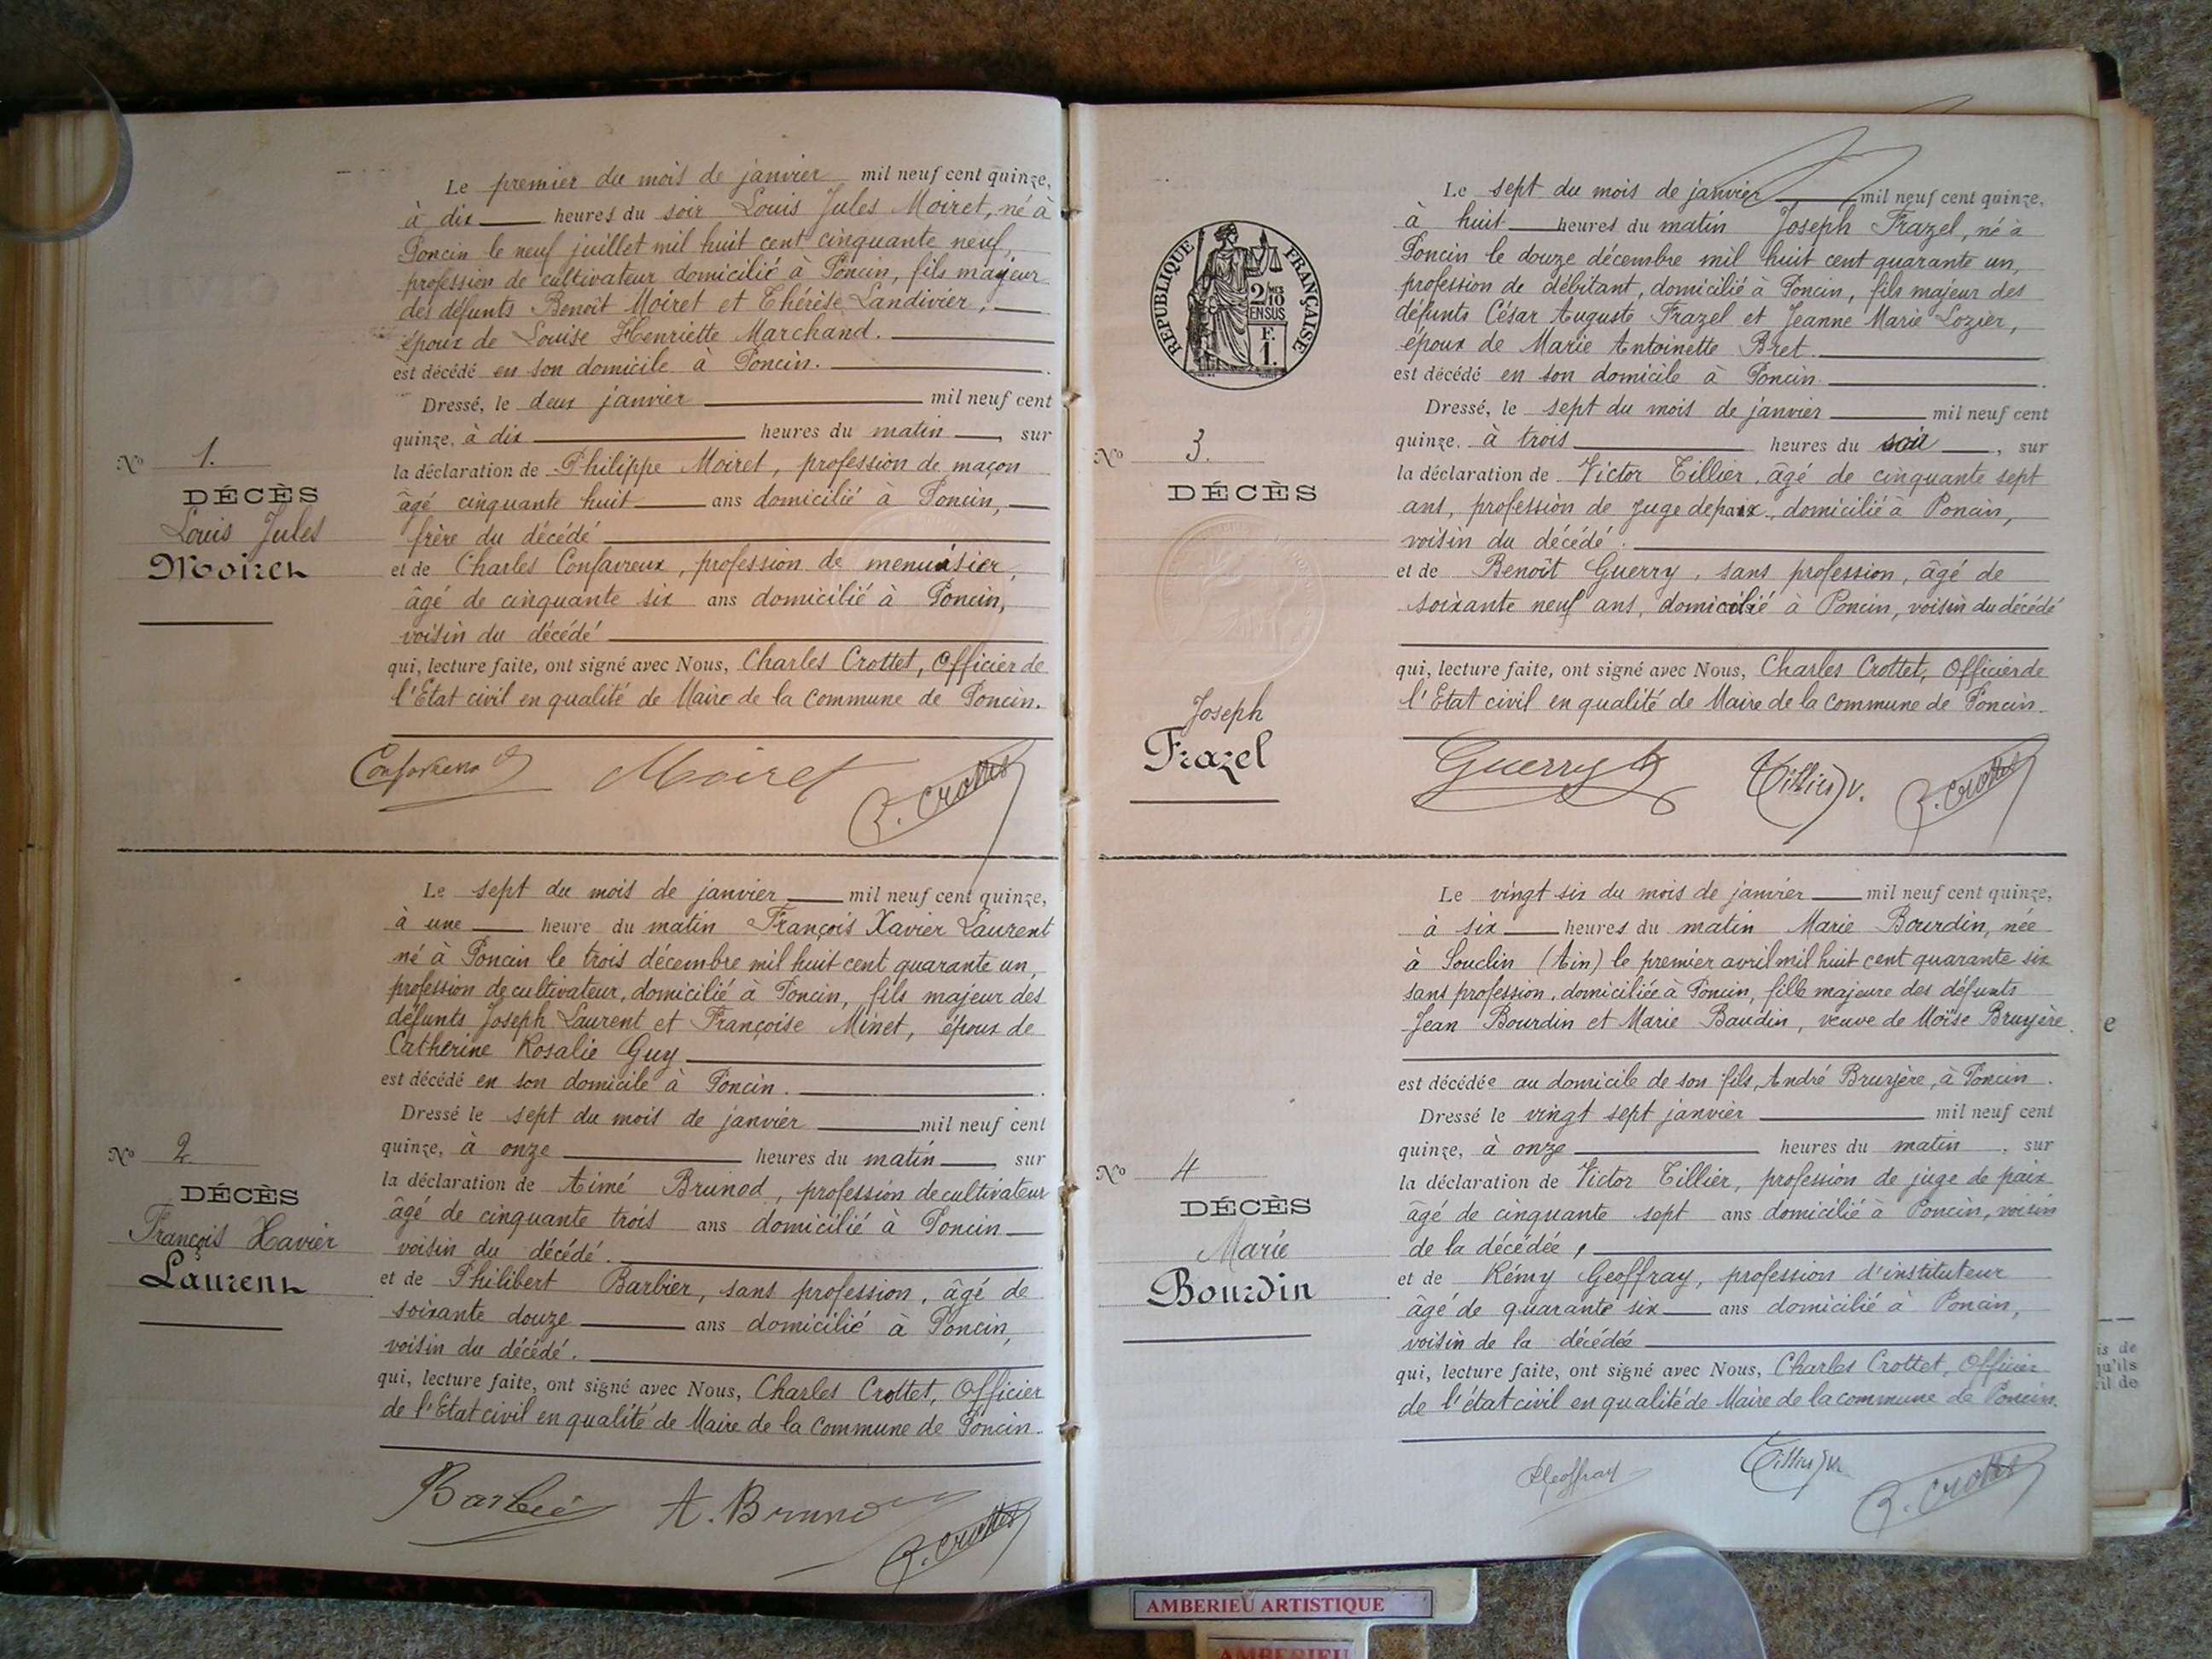 Le premier du mois de janvier mil neuf cent quinze,
à dix heures du soir Louis Jules Moiret, né à
Poncin le neuf juillet mil huit cent cinquante neuf,
profession de cultivateur domicilié à Poncin, fils majeur
des défunts Benoît Moiret et Thérèse Landivier,
époux de Louise Henriette Marchand.
est décédé en son domicile à Poncin.
Dressé, le deux janvier mil neuf cent
quinze, à dix heures du matin, sur
la déclaration de Philippe Moiret, profession de maçon
âgé cinquante huit ans domicilié à Poncin,
frère du décédé
et de Charles Confavreux, profession de menuisier,
âgé de cinquante six ans domicilié à Poncin,
voisin du décédé
qui, lecture faite, ont signé avec Nous, Charles Crottet, Officier de
l'Etat civil en qualité de Maire de la commune de Poncin.
Nº 1.
DÉCÈS
Louis Jules
Moiret
Confavreux Moiret C. Crottet
Le sept du mois de janvier mil neuf cent quinze,
à une heure du matin François Xavier Laurent
né à Poncin le trois décembre mil huit cent quarante un,
profession de cultivateur, domicilié à Poncin, fils majeur des
défunts Joseph Laurent et Françoise Minet, époux de
Catherine Rosalie Guy
est décédé en son domicile à Poncin.
Dressé le sept du mois de janvier mil neuf cent
quinze, à onze heures du matin, sur
la déclaration de Aimé Brunod, profession de cultivateur
âgé de cinquante trois ans domicilié à Poncin
voisin du décédé.
et de Philibert Barbier, sans profession, âgé de
soixante douze ans domicilié à Poncin,
voisin du décédé.
qui, lecture faite, ont signé avec Nous, Charles Crottet, Officier
de l'Etat civil en qualité de Maire de la commune de Poncin.
Nº 2.
DÉCÈS
François Xavier
Laurent
Barbié A. Brunod C. Crottet
Le sept du mois de janvier mil neuf cent quinze,
à huit heures du matin Joseph Frazel, né à
Poncin le douze décembre mil huit cent quarante un,
profession de débitant, domicilié à Poncin, fils majeur des
défunts César Auguste Frazel et Jeanne Marie Lozier,
époux de Marie Antoinette Bret.
est décédé en son domicile à Poncin.
Dressé, le sept du mois de janvier mil neuf cent
quinze, à trois heures du soir, sur
la déclaration de Victor Tillier, âgé de cinquante sept
ans, profession de juge de paix, domicilié à Poncin,
voisin du décédé.
et de Benoît Guerry, sans profession, âgé de
soixante neuf ans, domicilié à Poncin, voisin du décédé
qui, lecture faite, ont signé avec Nous, Charles Crottet, Officier de
l'Etat civil en qualité de Maire de la commune de Poncin.
RÉPUBLIQUE FRANÇAISE
2 MES
10
EN SUS
F.
1.
Nº 3.
DÉCÈS
Joseph
Frazel
Guerry Tillier V. C. Crottet
Le vingt six du mois de janvier mil neuf cent quinze,
à six heures du matin Marie Bourdin, née
à Souclin (Ain) le premier avril mil huit cent quarante six
sans profession, domiciliée à Poncin, fille majeure des défunts
Jean Bourdin et Marie Baudin, veuve de Moïse Bruyère.
est décédée au domicile de son fils, André Bruyère, à Poncin.
Dressé le vingt sept janvier mil neuf cent
quinze, à onze heures du matin, sur
la déclaration de Victor Tillier, profession de juge de paix
âgé de cinquante sept ans domicilié à Poncin, voisin
de la décédée,
et de Rémy Geoffray, profession d'instituteur
âgé de quarante six ans domicilié à Poncin,
voisin de la décédée
qui, lecture faite, ont signé avec Nous, Charles Crottet, Officier
de l'état civil en qualité de Maire de la commune de Poncin.
Nº 4
DÉCÈS
Marie
Bourdin
RGeoffray Tillier V. C. Crottet
e
is de
qu'ils
il de
AMBERIEU ARTISTIQUE
AMBERIEU